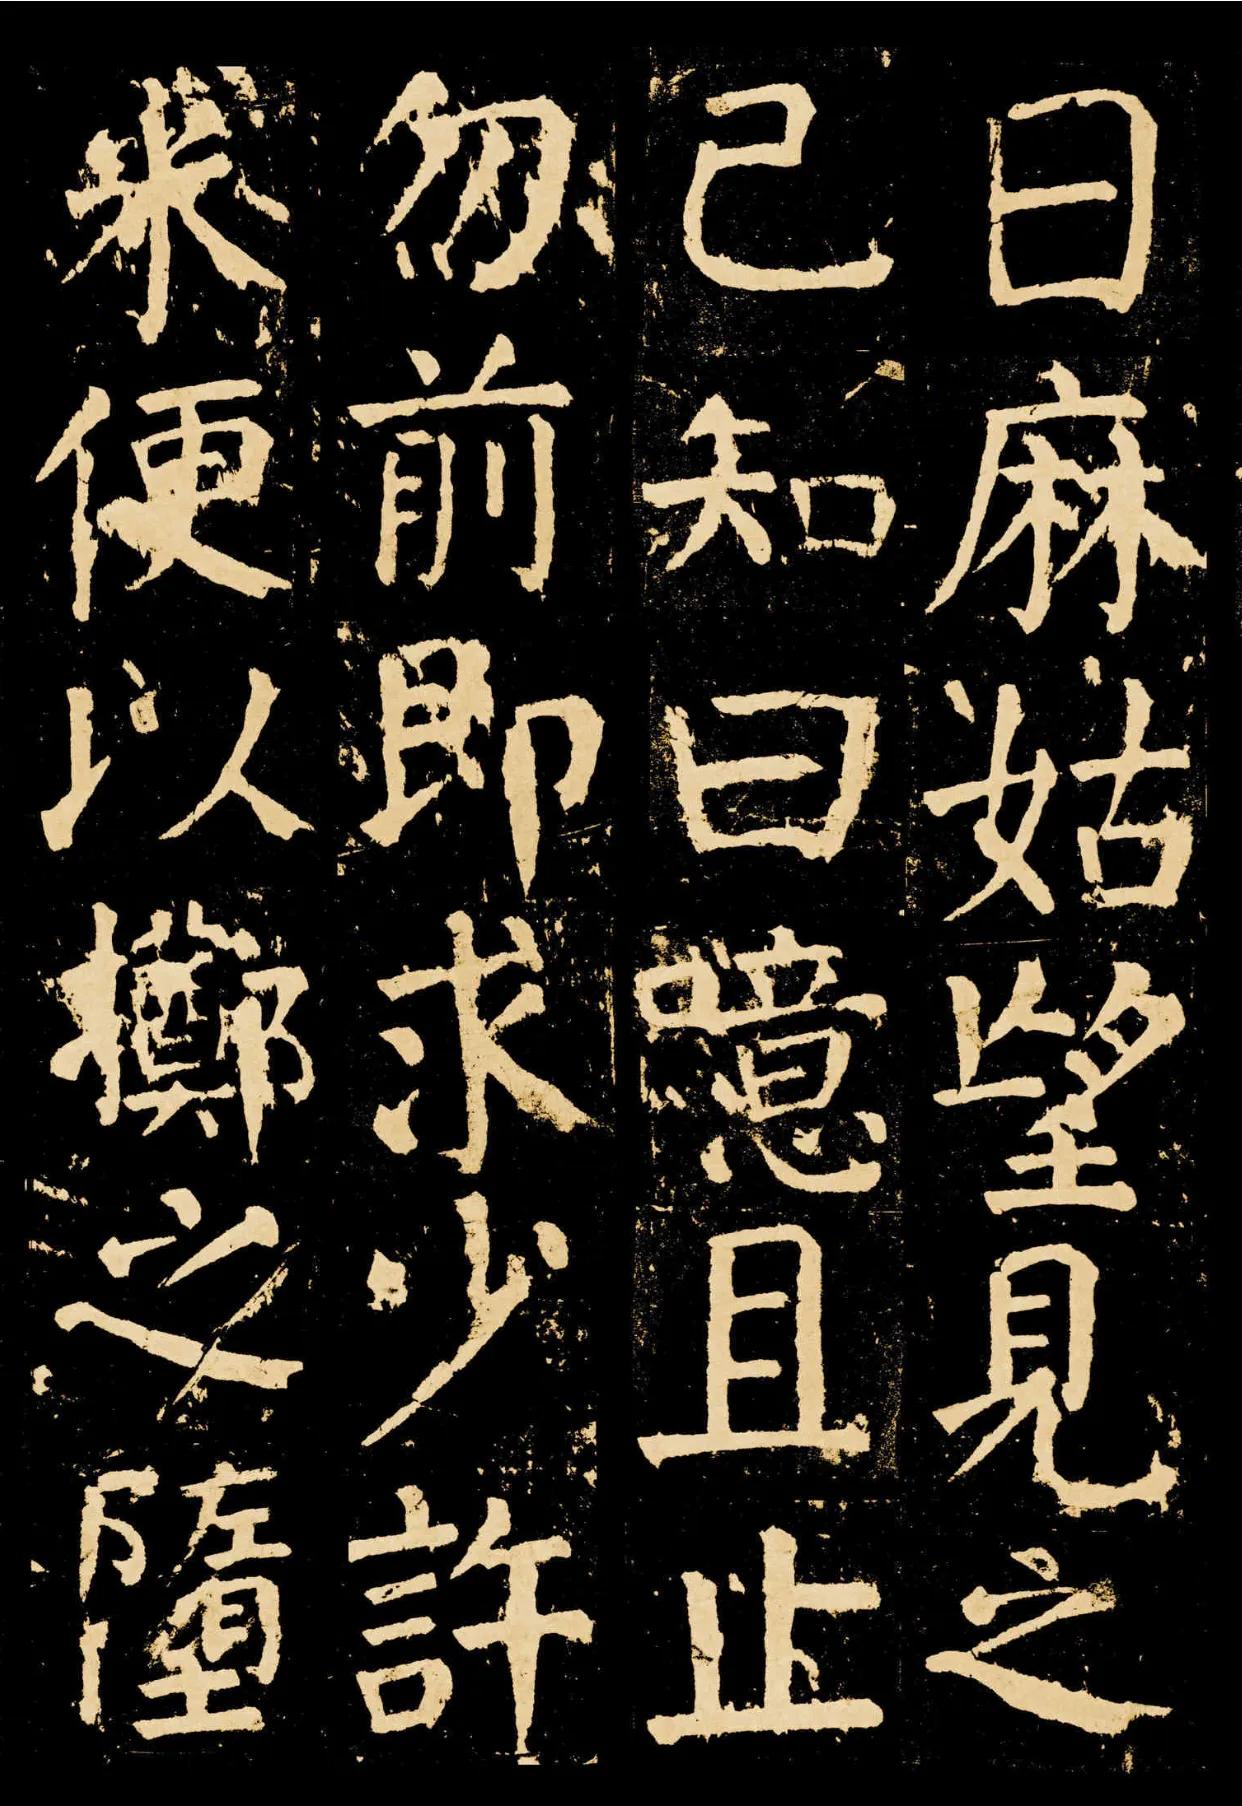 日麻姑望見之
已知曰噫且止
勿前即求少許
米便以擲之墮